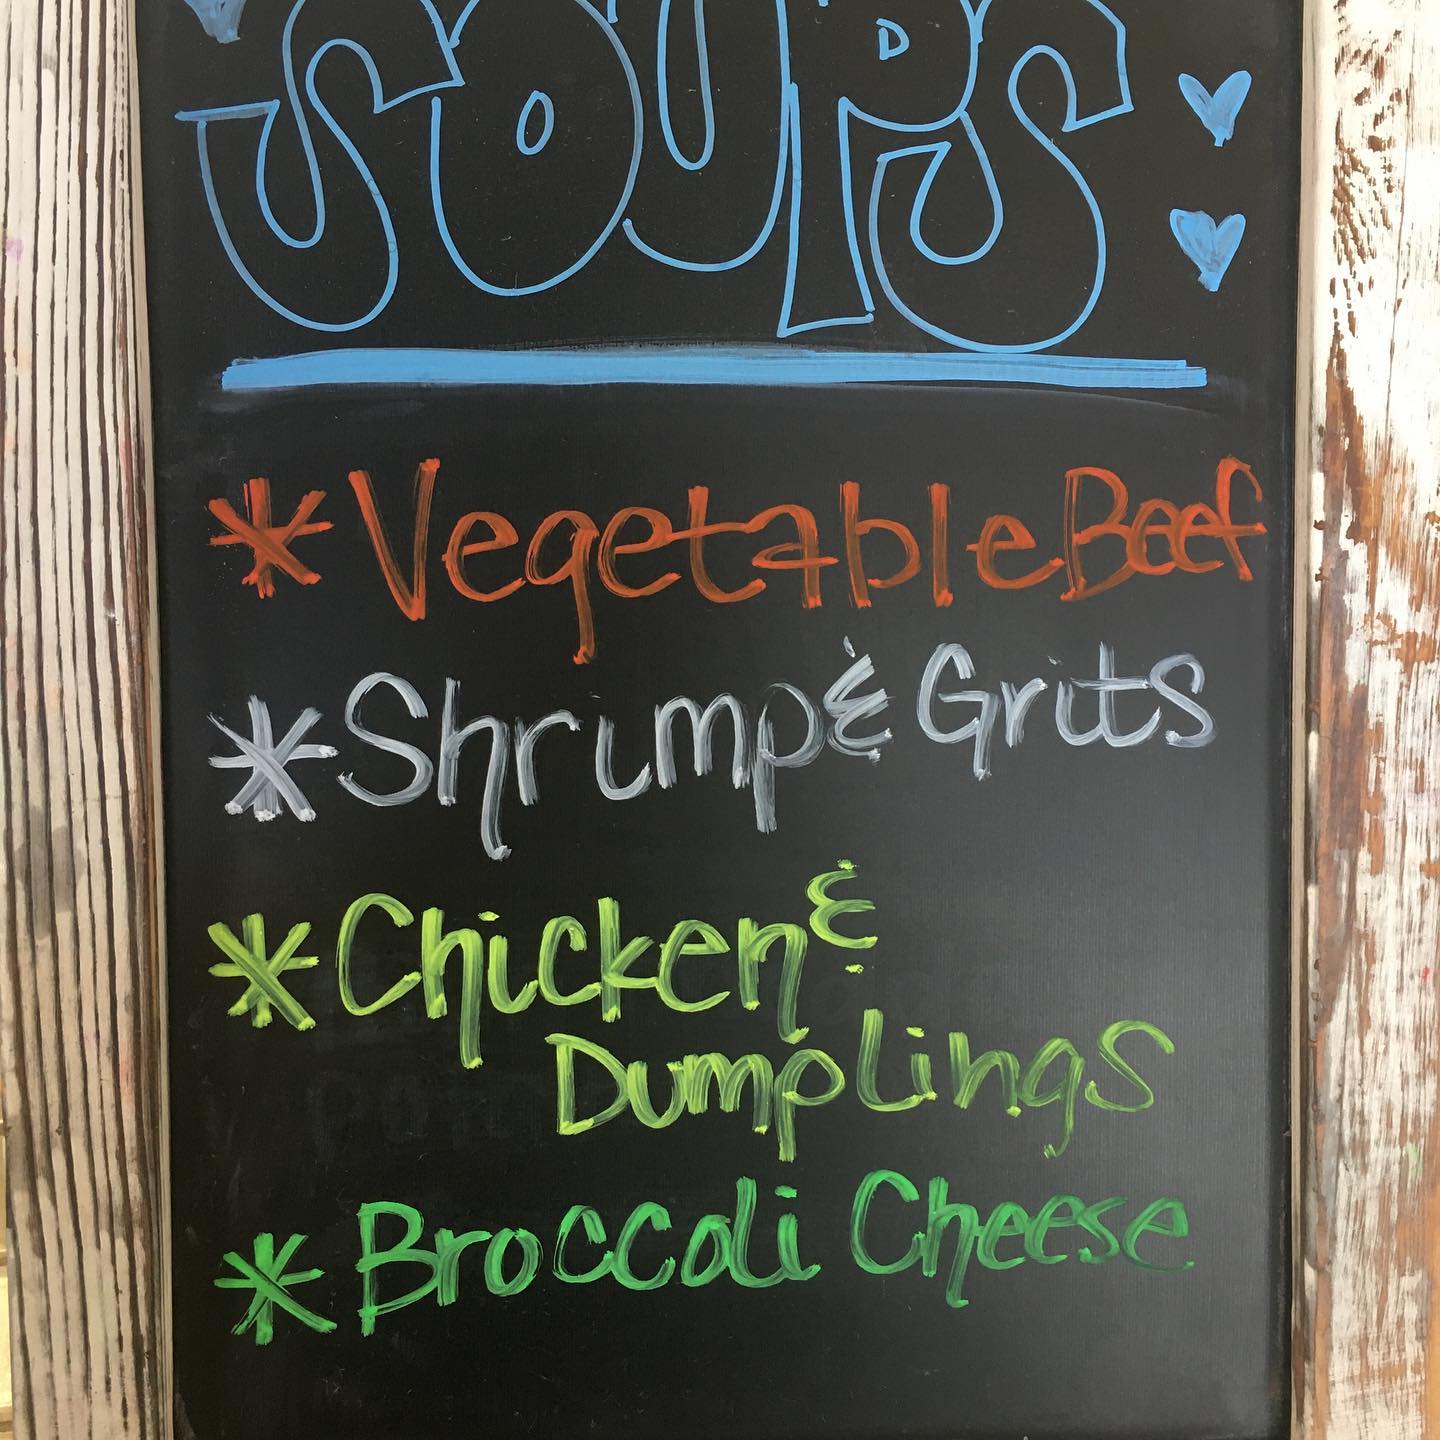 SOUPS
* Vegetable Beef
* Shrimp & Grits
* Chicken &
Dumplings
* Broccoli Cheese